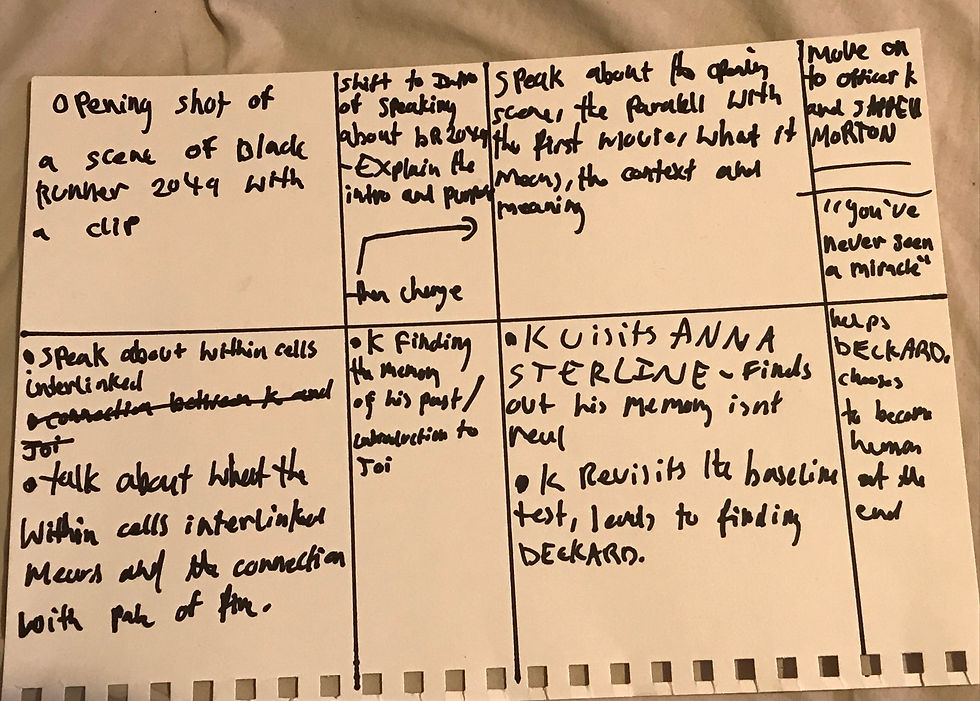 Opening shot of
a scene of Black
Runner 2049 with
a clip
Shift to Intro
of speaking
about BR2049
- Explain the
intro and purpose
then change
Speak about the opening
scene, the Paralell with
the first movie, what it
Means, the context and
meaning
Move on
to officer K
and SAPPER
MORTON
"You've
never seen
a miracle"
• Speak about within cells
interlinked
• connection between K and
Joi
• talk about what the
Within cells interlinked
Means and the connection
with Pale of fire.
• K Finding
the memory
of his past/
introduction to
Joi
• K Visits ANNA
STERLINE - Finds
out his memory isnt
real
• K Revisits the baseline
test, leads to finding
DECKARD.
helps
DECKARD.
chooses
to become
human
at the
end